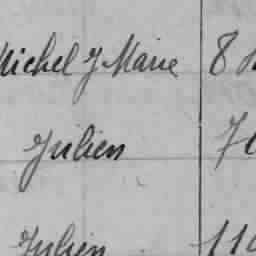 Michel J Marie 8
Julien 7
Julien 11